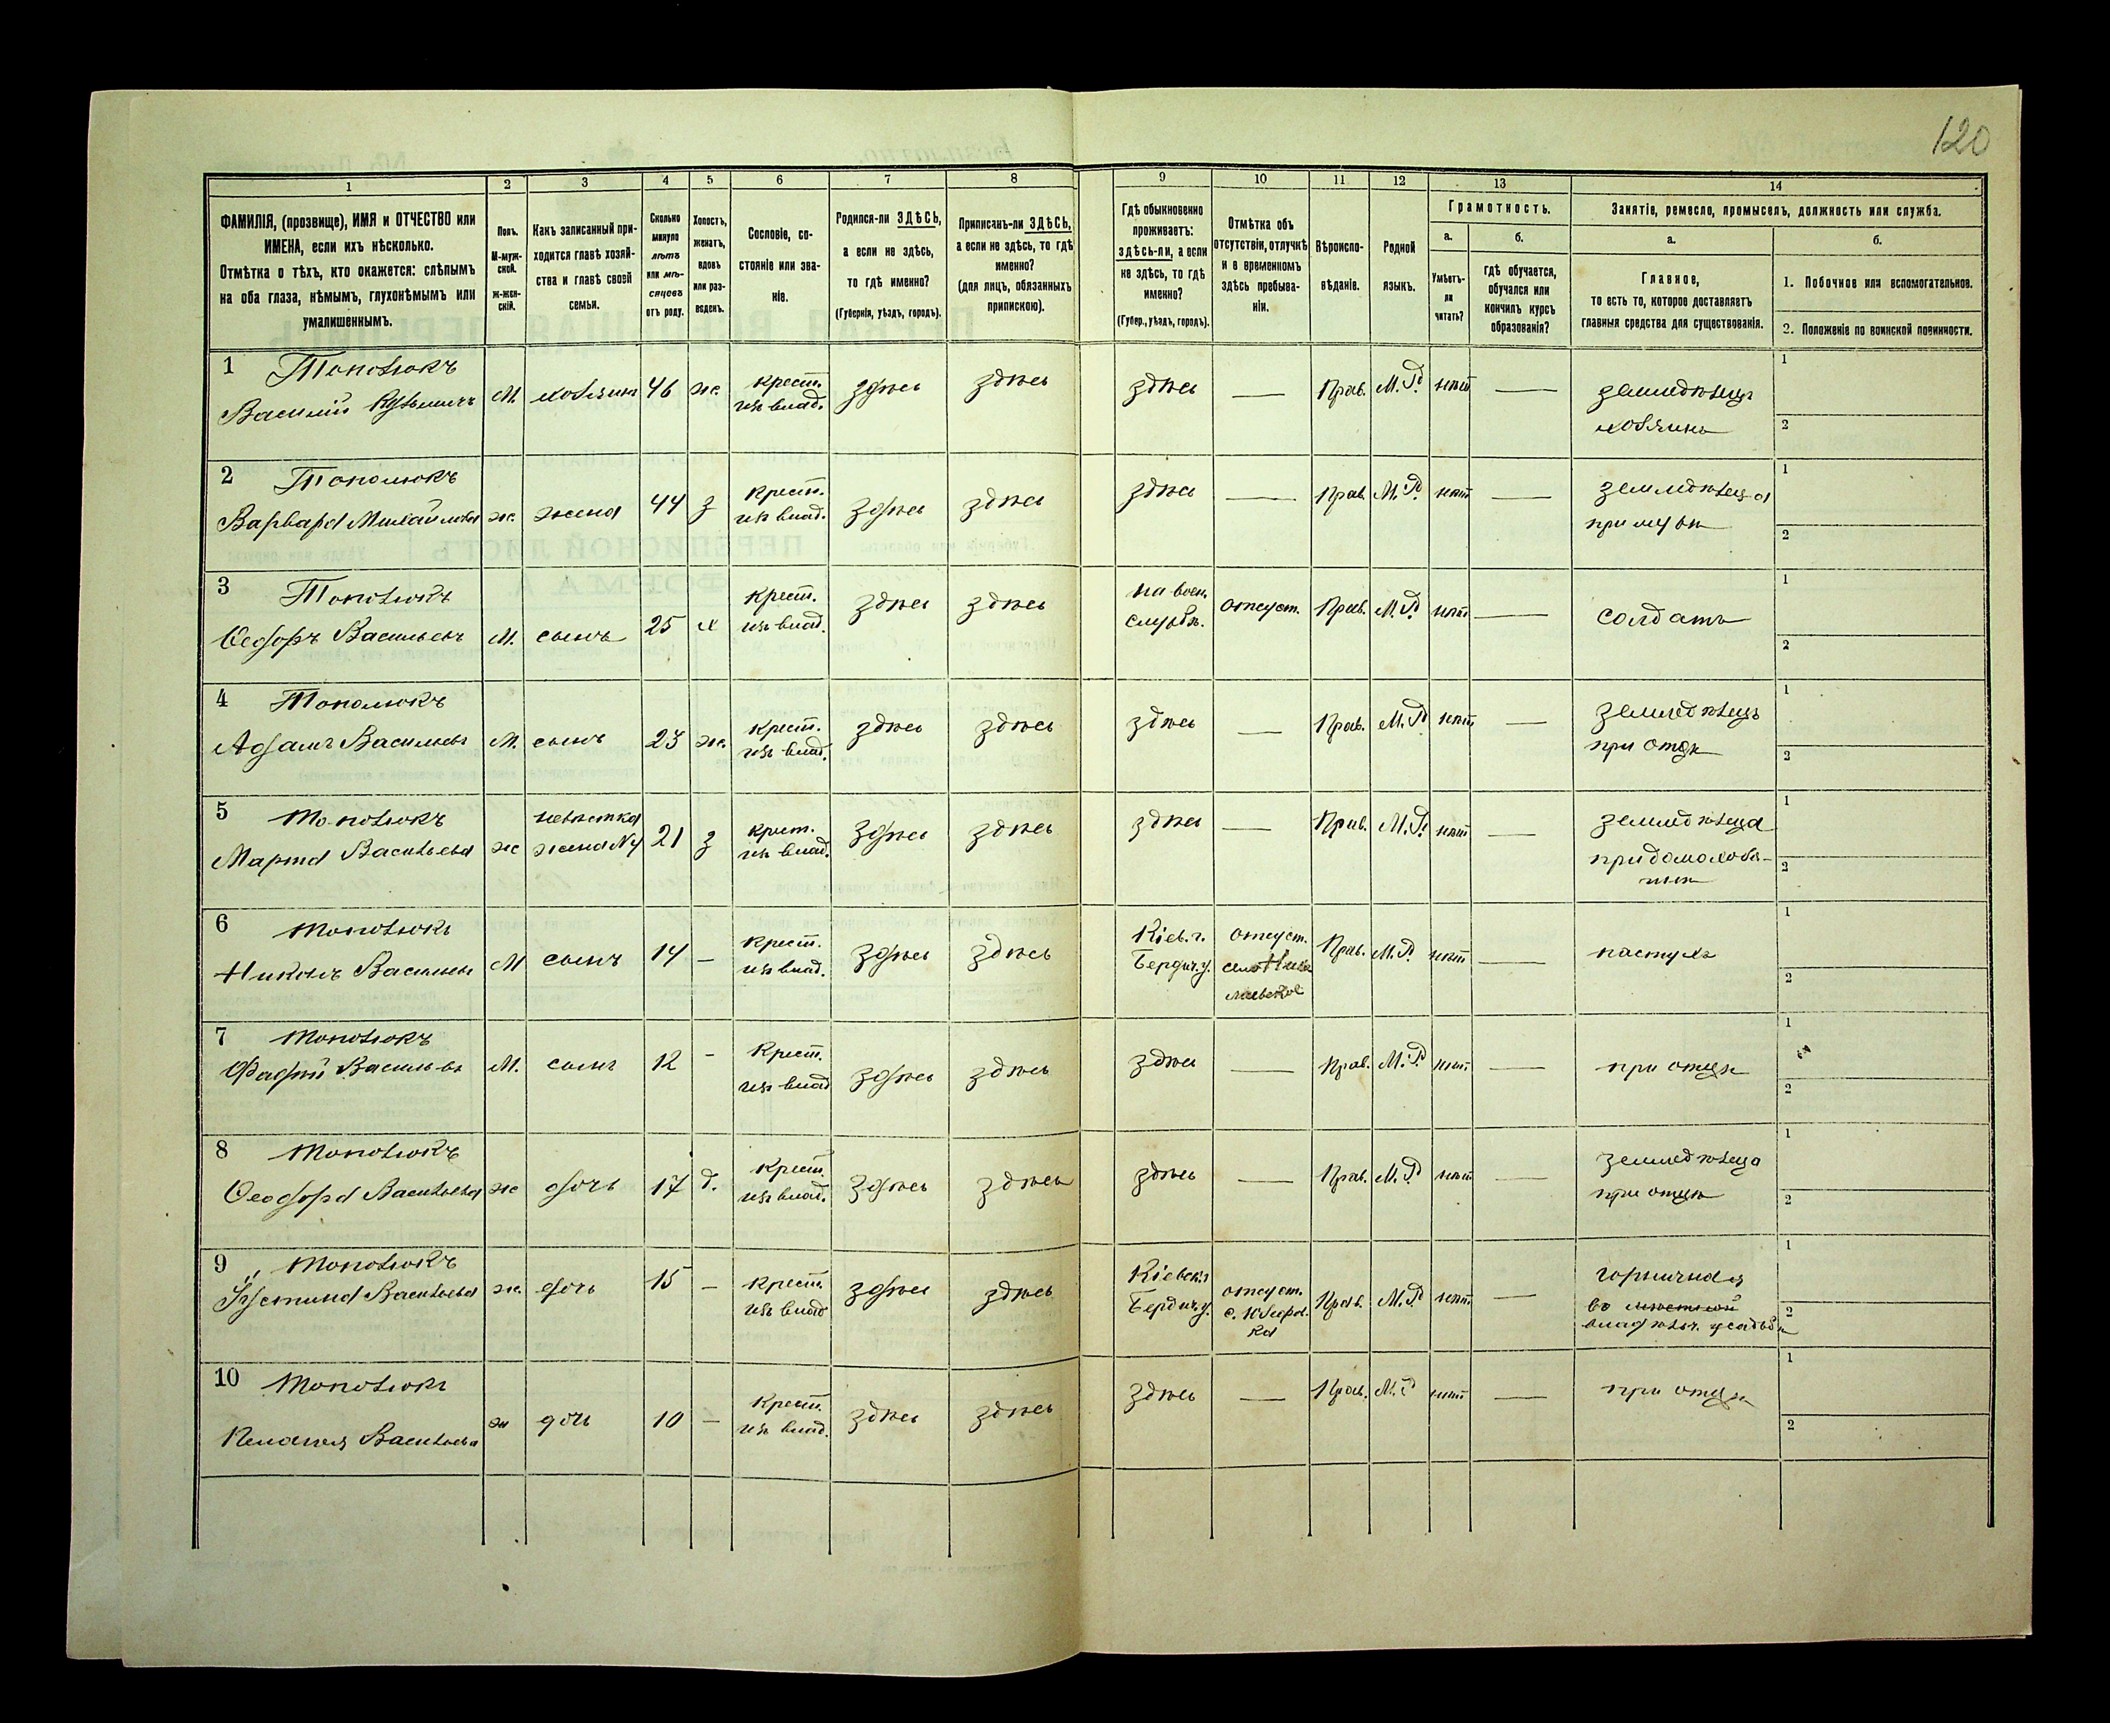 120
1 2 3 4 5 6 7 8 9 10 11 12 13 14
ФАМИЛІЯ, (прозвище), ИМЯ и ОТЧЕСТВО или
ИМЕНА, если ихъ нѣсколько.
Отмѣтка о тѣхъ, кто окажется: слѣпымъ
на оба глаза, нѣмымъ, глухонѣмымъ или
умалишеннымъ.
Полъ.
М-муж-
ской.
ж-жен-
скій.
Какъ записанный при-
ходится главѣ хозяй-
ства и главѣ своей
семьи.
Сколько
минуло
лѣтъ
или мѣ-
сяцевъ
отъ роду.
Холостъ,
женатъ,
вдовъ
или раз-
веденъ.
Сословіе, со-
стояніе или зва-
ніе.
Родился-ли ЗДѢСЬ,
а если не здѣсь,
то гдѣ именно?
(Губернія, уѣздъ, городъ).
Приписанъ-ли ЗДѢСЬ,
а если не здѣсь, то гдѣ
именно?
(для лицъ, обязанныхъ
припискою).
Гдѣ обыкновенно
проживаетъ:
здѣсь-ли, а если
не здѣсь, то гдѣ
именно?
(Губер., уѣздъ, городъ).
Отмѣтка объ
отсутствіи, отлучкѣ
и о временномъ
здѣсь пребыва-
ніи.
Вѣроиспо-
вѣданіе.
Родной
языкъ.
Грамотность.
а.
Умѣетъ-
ли
читать?
б.
Гдѣ обучается,
обучался или
кончилъ курсъ
образованія?
Занятіе, ремесло, промыселъ, должность или служба.
а.
Главное,
то есть то, которое доставляетъ
главныя средства для существованія.
б.
1. Побочное или вспомогательное.
2. Положеніе по воинской повинности.
1 Тополюкъ
Василій Кузьмичъ М. хозяинъ 46 ж. крест. изъ влад. здѣсь здѣсь здѣсь — Прав. М.Р. нѣтъ — земледѣлецъ
хозяинъ
1
2
2 Тополюкъ
Варвара Михайлова ж. жена 44 з крест. изъ влад. здѣсь здѣсь здѣсь — Прав. М.Р. нѣтъ — земледѣлеца
при мужѣ
1
2
3 Тополюкъ
Ѳеодоръ Васильевъ М. сынъ 25 х крест. изъ влад. здѣсь здѣсь на воен. службѣ. отсуст. Прав. М.Р. нѣтъ — солдатъ
1
2
4 Тополюкъ
Адамъ Васильевъ М. сынъ 23 ж. крест. изъ влад. здѣсь здѣсь здѣсь — Прав. М.Р. нѣтъ — земледѣлецъ
при отцѣ
1
2
5 Тополюкъ
Марта Васильева ж невѣстка жена №4 21 з крест. изъ влад. здѣсь здѣсь здѣсь — Прав. М.Р. нѣтъ — земледѣлеца
при домохозя-
инѣ
1
2
6 Тополюкъ
Никонъ Васильевъ М сынъ 14 — крест. изъ влад. здѣсь здѣсь Кіев. г. Бердич. у. отсуст. село Прав. М.Р. нѣтъ — пастухъ
1
2
7 Тополюкъ
Фадѣй Васильевъ М. сынъ 12 - Крест. изъ влад здѣсь здѣсь здѣсь — Прав. М.Р. нѣтъ — при отцѣ
1
2
8 Тополюкъ
Ѳеодора Васильева ж дочь 17 д. крест. изъ влад. здѣсь здѣсь здѣсь — Прав. М.Р. нѣтъ — земледѣлеца
при отцѣ
1
2
9 Тополюкъ
Іустина Васильева ж. дочь 15 — крест. изъ влад здѣсь здѣсь Кіевск. г Бердич. у. отсуст. с. Прав. М.Р. нѣтъ — горничная
во
владѣльч. усадьбѣ
1
2
10 Тополюкъ
Пелагея Васильева ж дочь 10 — Крест. изъ влад. здѣсь здѣсь здѣсь — Прав. М.Р. нѣтъ — при отцѣ
1
2